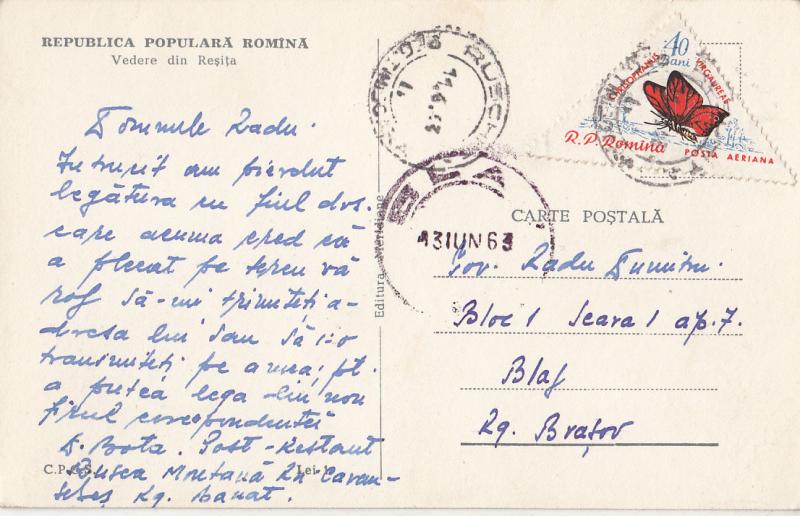 REPUBLICA POPULARĂ ROMÎNĂ
Vedere din Reșița
Domnule Radu.
Întrucît am pierdut
legătura cu fiul dvs.
care acuma cred că
a plecat pe teren vă
rog să-mi trimiteți a-
dresa lui sau să i-o
transmiteți pe a mea; pt.
a putea lega din nou
firul corespondenței
D. Bota. Post-Restant
Rusca Montană Rn. Caran-
sebeș Rg. Banat.
C.P.C.S.
Lei 1
Editura Meridiane
RUSCA
11.6.63
11
BLAJ
13 IUN 63
40
Bani
VIRGAUREAE
R.P. Romînă
POSTA AERIANA
CARTE POȘTALĂ
Tov. Radu Dumitru.
Bloc 1 Scara 1 ap. 7.
Blaj
Rg. Brașov